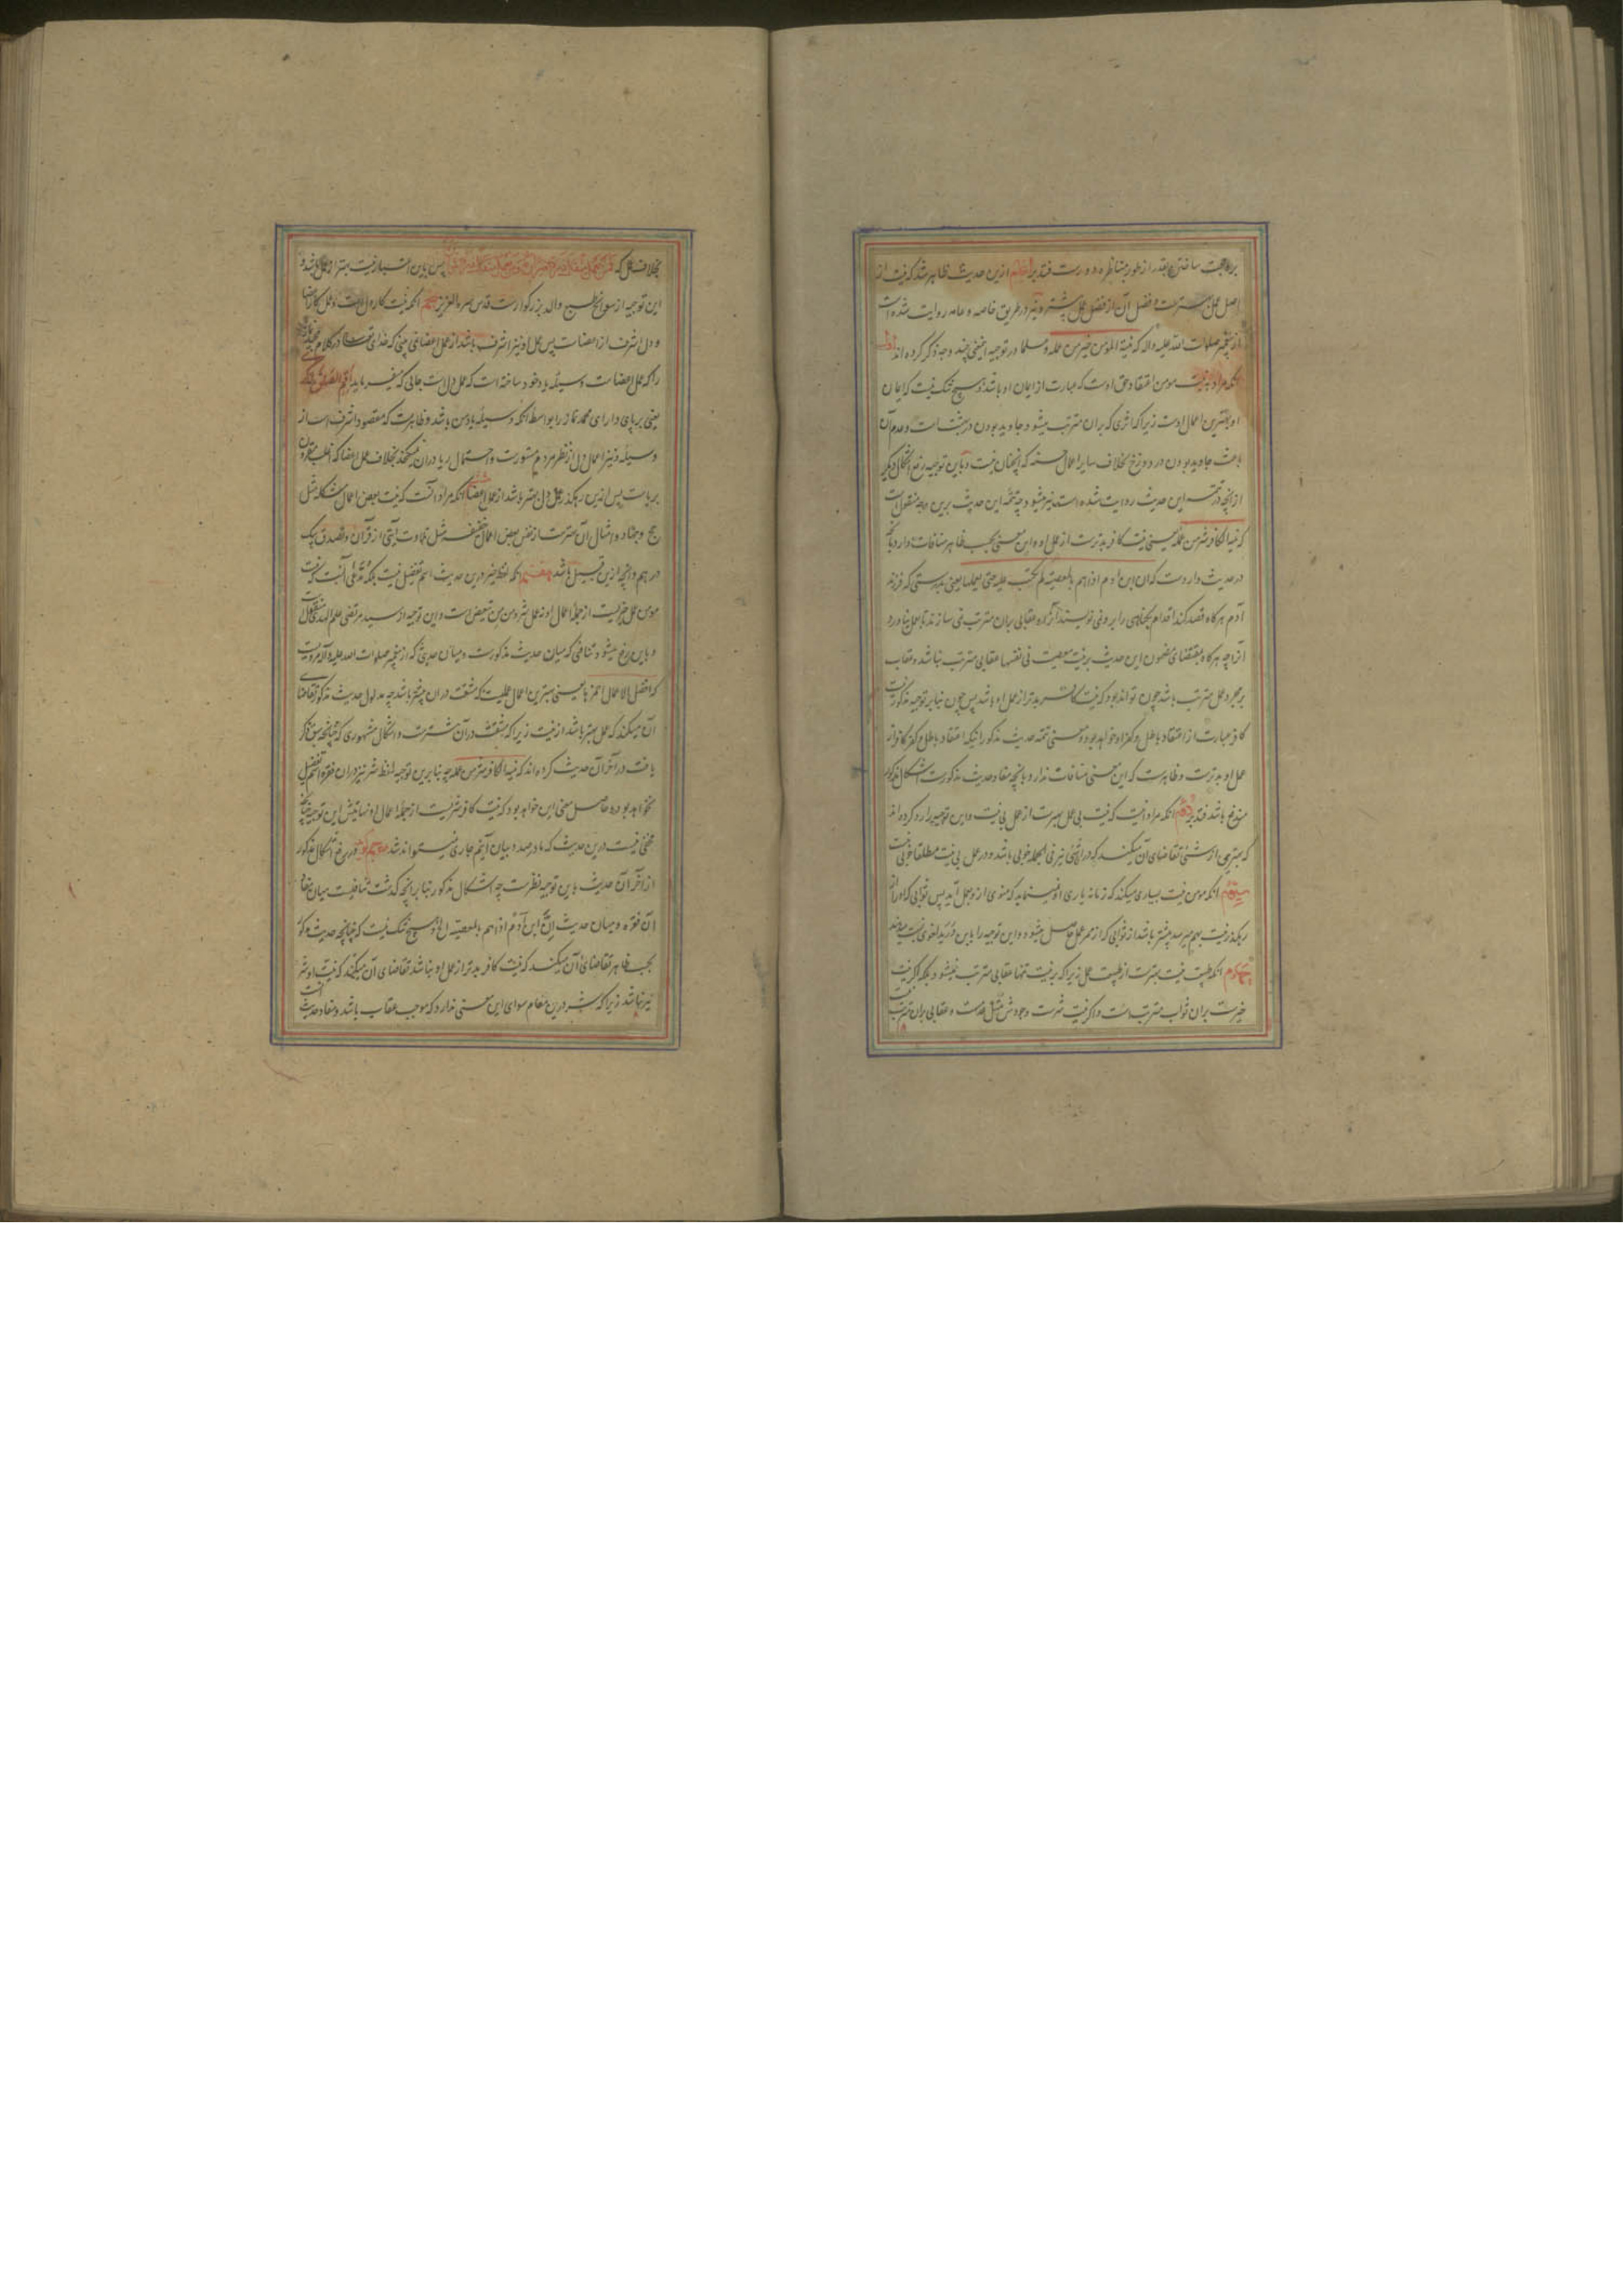 اصل عمل بهترست و فضل آن از فضل عمل بیشتر و نیز در طریق خاصه و عامه روایت شده است
از پیغمبر صلوات الله علیه و اله که نیة المؤمن خیر من عمله و علما در توجیه این معنی چند وجه ذکر کرده اند اول
آنکه مراد به نیت مومن اعتقاد حق اوست که عبارت از ایمان او باشد و هیچ شک نیست که ایمان
او بهترین اعمال اوست زیرا که اثری که بران مترتب میشود جاوید بودن در بهشت است و عدم آن
باعث جاوید بودن در دوزخ بخلاف سایر اعمال حسنه که آنچنان نیست و باین توجیه رفع اشکال دیگر
از آنچه در تتمه این حدیث روایت شده است نیز میشود چه تتمه این حدیث برین وجه منقول است
که نیة الکافر شر من عمله یعنی نیت کافر بدترست از عمل او و این معنی بحسب ظاهر منافات دارد بآنچه
در حدیث واردست که ان ابن آدم اذا هم بالمعصیة لم تکتب علیه حتی یعملها یعنی بدرستی که فرزند
آدم هرگاه قصد کند اقدام بگناهی را برو نمی نویسند آنرا و عقابی بران مترتب نمی سازند تا بعمل نیاورد
آنرا چه هرگاه بمقتضای مضمون این حدیث بر نیت معصیت فی نفسها عقابی مترتب نباشد و عقاب
بر مجرد عمل مترتب باشد چون تواند بود که نیت کافر بدتر از عمل او باشد پس چون بنابر توجیه مذکور نیت
کافر عبارت از اعتقاد باطل و کفر او خواهد بود و معنی تتمه حدیث مذکور اینکه اعتقاد باطل و کفر کافر از
عمل او بدترست و ظاهرست که این معنی منافات ندارد بآنچه مفاد حدیث مذکورست اشکال مذکور
مندفع باشد فتدبر دوم آنکه مراد آنست که نیت بی عمل بهترست از عمل بی نیت و این توجیه را رد کرده اند
که بهتر چیزی از شیئی تقاضای آن میکند که در آن شئی نیز فی الجمله خوبی باشد و در عمل بی نیت مطلقا خوبی نیست
سیوم آنکه مومن نیت بسیاری میکند که زمانه یاری او نمینماید که منوی از و بعمل آید پس ثوابی که او را از
رهگذر نیت بهم میرسد بیشتر باشد از ثوابی که از ممر عمل حاصل میشود و این توجیه را باین
چهارم آنکه طبیعت نیت بهترست از طبیعت عمل زیرا که بر نیت تنها عقابی مترتب نمیشود بلکه اگر نیت
خیرست بران ثواب مترتب است و اگر نیت شرست وجودش مثل عدمست و عقابی بران مترتب نیست
بخلاف عمل که فمن یعمل مثقال ذرة خیرا یره و من یعمل مثقال ذرة شرا یره پس باین اعتبار نیت بهتر از عمل باشد و
این توجیه از سوانح طبع والد بزرگوارست قدس سره العزیز پنجم آنکه نیت کار دل است و عمل کار اعضا
و دل اشرف از اعضاست پس عمل او نیز اشرف باشد از عمل اعضا نمی بینی که خدای تعالی در کلام مجید نماز
را که عمل اعضاست وسیله یاد خود ساخته است که عمل دل است جائی که میفرماید اقم الصلوة لذکری
یعنی برپای دار ای محمد نماز را بواسطه آنکه وسیله یاد من باشد و ظاهرست که مقصود اشرف است از
وسیله و نیز اعمال دل از نظر مردم مستورست و احتمال ریا در آن نمیگنجد بخلاف عمل اعضا که اغلب مقرون
بریاست پس ازین رهگذر عمل دل بهتر باشد از عمل اعضا ششم آنکه مراد آنست که نیت بعض اعمال شاقه مثل
حج و جهاد و امثال آن بهترست از بعض اعمال خفیفه مثل تلاوت آیتی از قرآن و تصدق بیک
درهم و آنچه ازین قبیل باشد هفتم آنکه لفظ خیر درین حدیث اسم تفضیل نیست بلکه مدعی آنست که نیت
مومن عمل خیریست از جمله اعمال او نه عمل شر و من من تبعیض است و این توجیه از سید مرتضی علم الهدی منقولست
و باین رفع میشود تنافی که میان حدیث مذکورست و میان حدیثی که از پیغمبر صلوات الله علیه و آله مرویست
که افضل الاعمال احمزها یعنی بهترین اعمال عملیست که مشقت در آن بیشتر باشد چه مدلول حدیث مذکور تقاضای
آن میکند که عمل بهتر باشد از نیت زیرا که مشقت در آن بیشترست و اشکال مشهوری که چنانچه سبق ذکر
یافت در آخر آن حدیث کرده اند که نیة الکافر شر من عمله چه بنابرین توجیه لفظ شر نیز در آن فقره اسم تفضیل
نخواهد بود و حاصل معنی این خواهد بود که نیت کافر شریست از جمله اعمال او نهایتش این توجیه چنانچه
مخفی نیست درین حدیث که ما در صدد بیان آنیم جاری نمیتواند شد در رفع اشکال مذکور
از آخر آن حدیث باین توجیه نظرست چه اشکال مذکور بنابر آنچه گذشت تنافیست میان مفاد
آن فقره و میان حدیث ان ابن آدم اذا هم بالمعصیة الخ و هیچ شک نیست که چنانچه حدیث مذکور
بحسب ظاهر تقاضای آن میکند که نیت کافر بدتر از عمل او نباشد تقاضای آن میکند که نیت او شر
نیز نباشد زیرا که شر درین مقام سوای این معنی ندارد که موجب عقاب باشد و مفاد حدیث